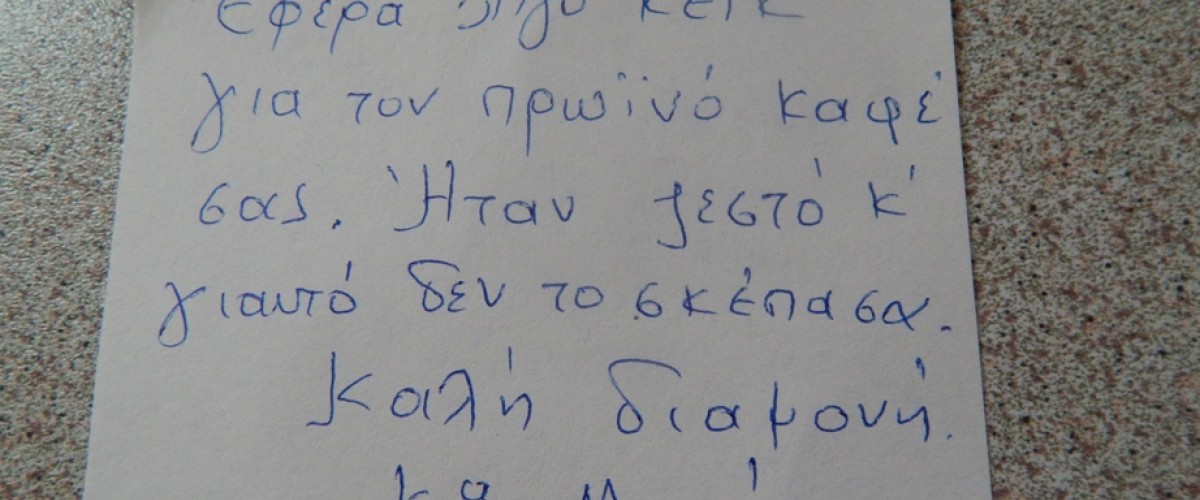 έφερα λίγο κέικ
για τον πρωϊνό καφέ
σας. Ήταν ζεστό κ'
γιαυτό δεν το σκέπασα.
Καλή διαμονή.